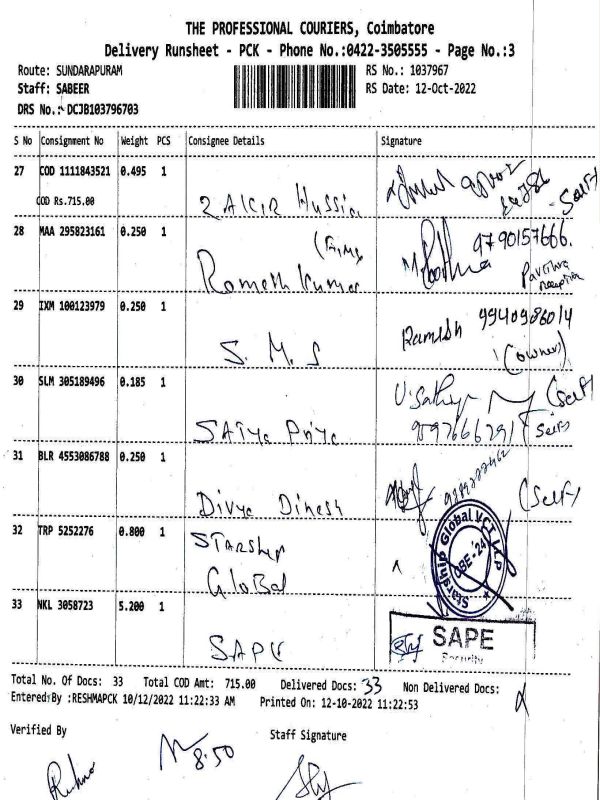 THE PROFESSIONAL COURIERS, Coimbatore
Delivery Runsheet - PCK - Phone No.:0422-3505555 - Page No.:3
Route: SUNDARAPURAM
RS No.: 1037967
Staff: SABEER
RS Date: 12-Oct-2022
DRS No.: DCJB103796703
S No Consignment No Weight PCS Consignee Details Signature
27 COD 1111843521 0.495 1
COD Rs.715.00
ZAKIR Hussin
Self
28 MAA 295823161 0.250 1
9790157666.
Ramesh Kumar
29 IXM 100123979 0.250 1
Ramesh 9940986014
S. M. S
(owner)
30 SLM 305189496 0.185 1
(Self)
SAtya Priya
9597666291 (Self)
31 BLR 4553086788 0.250 1
Divya Dinesh
(Self)
32 TRP 5252276 0.800 1
STARSHIP
Global
Starship Global VCT LLP
CBE-'24
33 NKL 3058723 5.200 1
SAPE
SAPE
Security
Total No. Of Docs: 33 Total COD Amt: 715.00 Delivered Docs: 33 Non Delivered Docs:
Entered By :RESHMAPCK 10/12/2022 11:22:33 AM Printed On: 12-10-2022 11:22:53
Verified By
Staff Signature
8:50